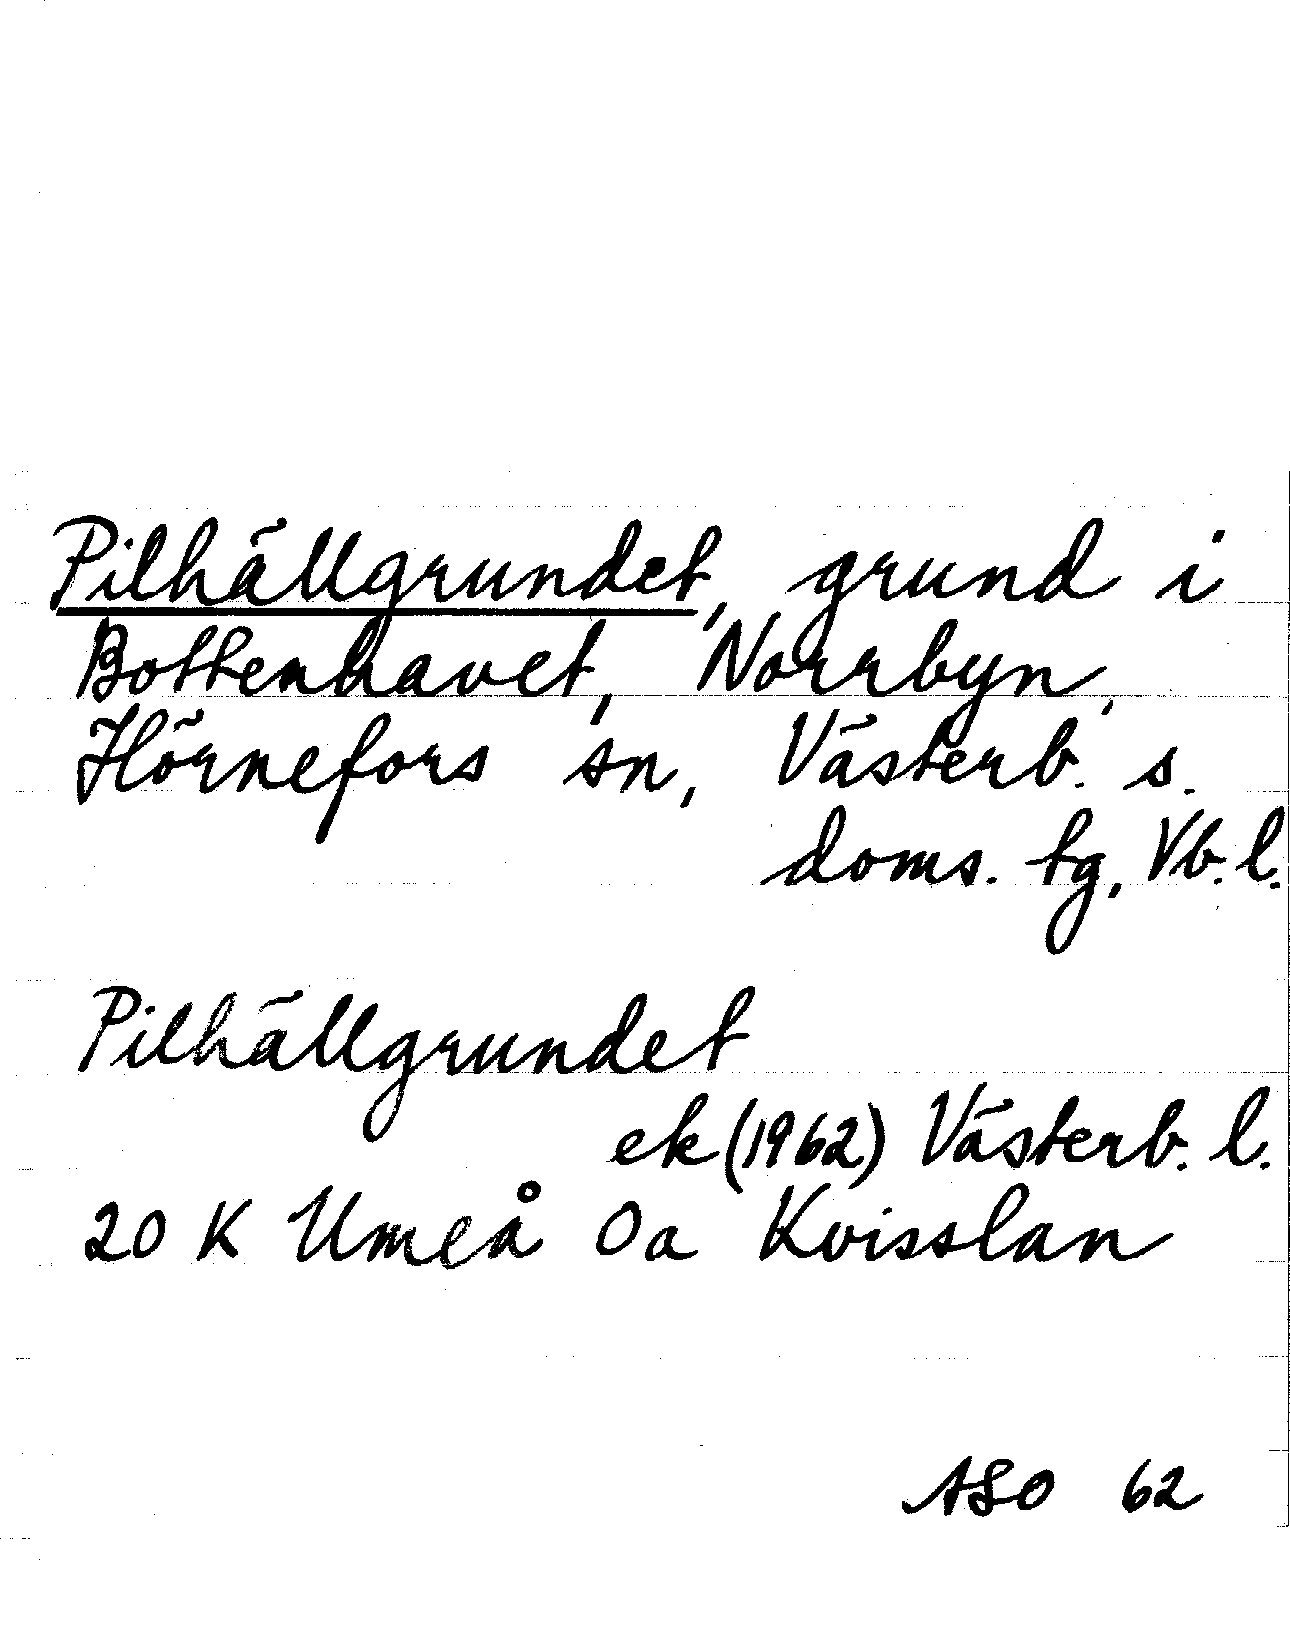 Pilhällgrundet, grund i
Bottenhavet, Norrbyn,
Hörnefors sn, Västerb. s.
doms. tg, Vb. l.
Pilhällgrundet
ek (1962) Västerb. l.
20 K Umeå 0a Kvisslan
ASO 62